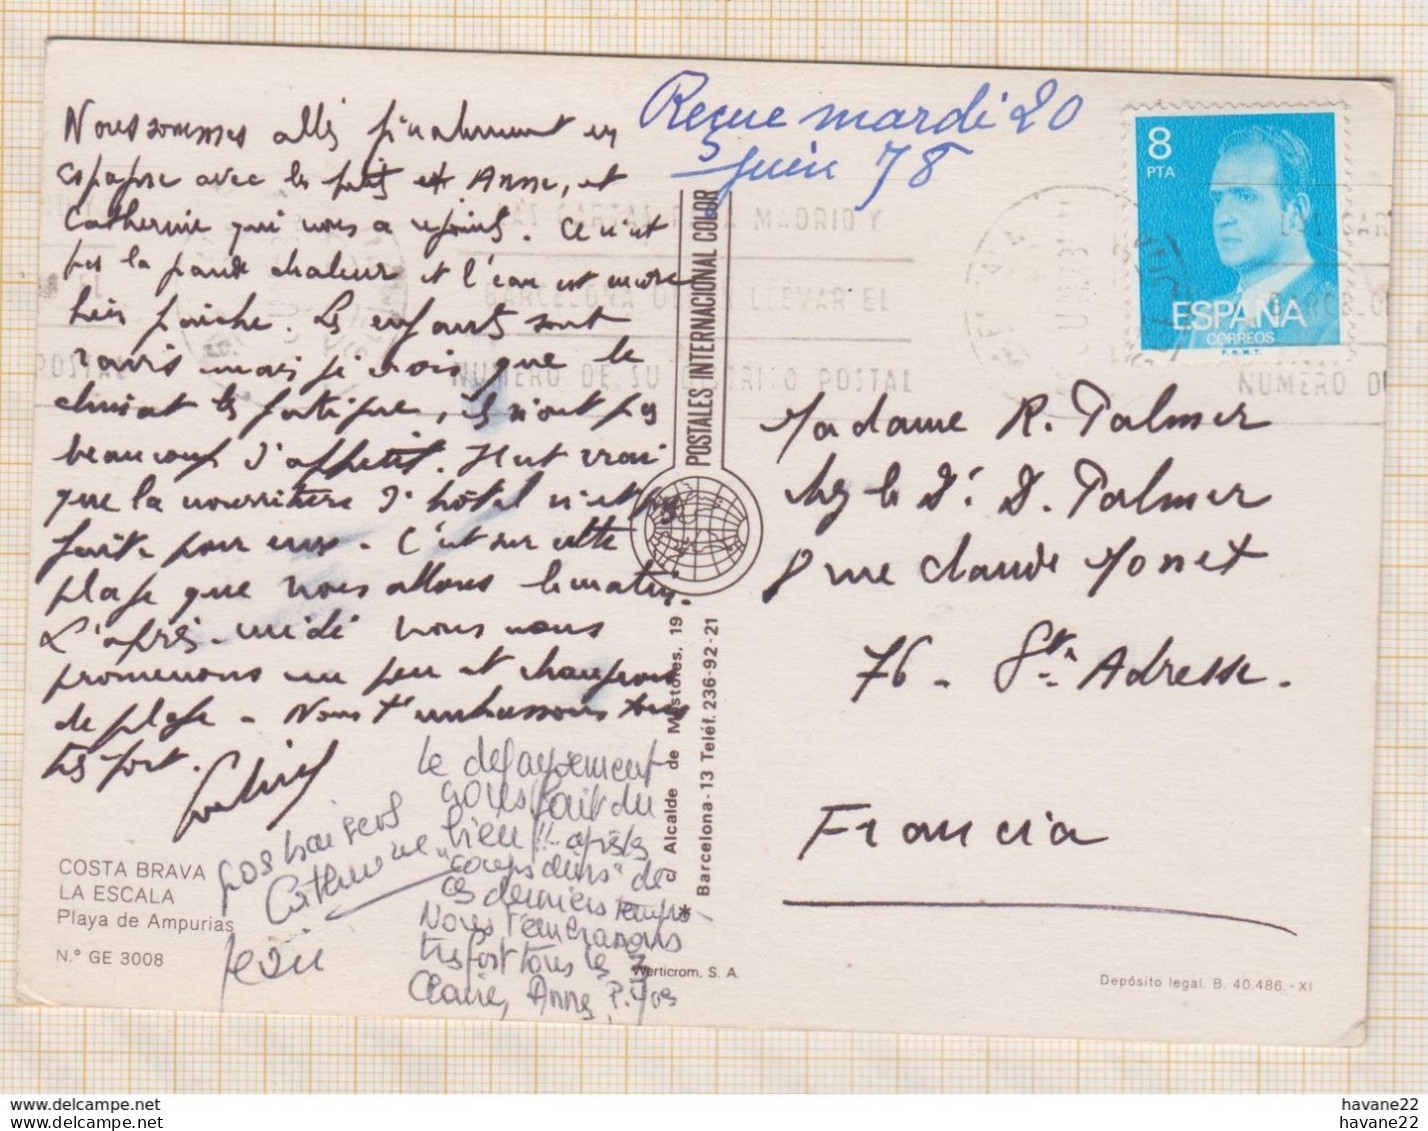 Reçue mardi 20
Juin 78
Nous sommes allés finalement en
espagne avec les petits et Anne, et
Catherine qui nous a rejoints. Ce n'est
pas la grande chaleur et l'eau est encore
bien fraiche. Les enfants sont
ravis mais je crois que le
climat les fatigue, ils n'ont pas
beaucoup d'appétit. Il est vrai
que la nourriture d'hôtel n'est pas
faite pour eux. C'est sur cette
plage que nous allons le matin.
L'après-midi nous nous
promenons un peu et changeons
de plage. Nous t'embrassons tous
très fort.
gos baisers
Catherine
Le dépaysement
nous fait du
bien!! après les
"coups durs" de
ces derniers temps
Nous t'embrassons
très fort tous les 3
Claire, Anne, P. Yves
COSTA BRAVA
LA ESCALA
Playa de Ampurias
N.º GE 3008
POSTALES INTERNACIONAL COLOR
c/ Alcalde de Móstoles, 19
Barcelona-13 Teléf. 236-92-21
Werticrom, S. A.
8
PTA
ESPAÑA
CORREOS
F.N.M.T.
LAS CARTAS PARA MADRID Y
BARCELONA DEBEN LLEVAR EL
NUMERO DE SU DISTRITO POSTAL
Madame R. Palmer
chez le Dr. D. Palmer
8 rue Claude Monet
76 - Ste. Adresse.
Francia
Depósito legal. B. 40.486.-XI
havane22
havane22
www.delcampe.net
www.delcampe.net